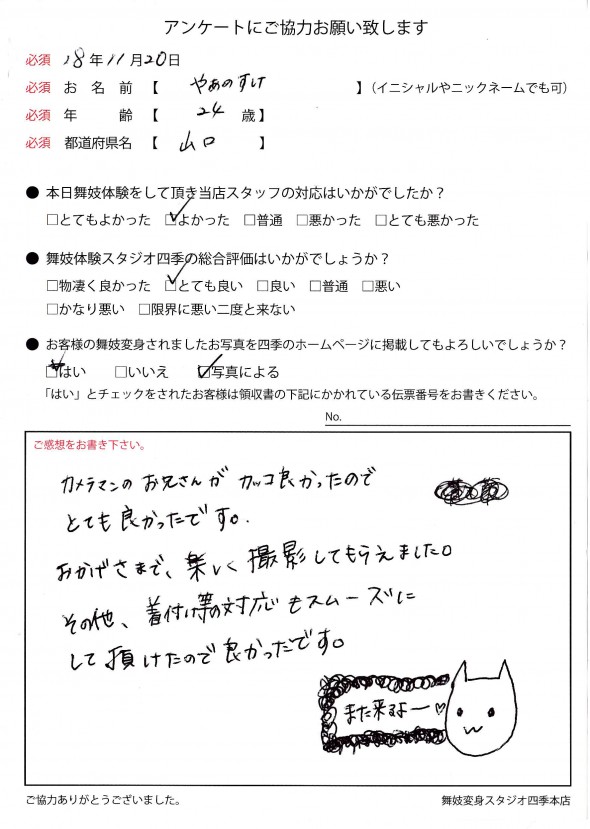 アンケートにご協力お願い致します
必須 18年11月20日
必須 お 名 前 【 やぁのすけ 】（イニシャルやニックネームでも可）
必須 年 齢 【 24 歳】
必須 都道府県名 【 山口 】
● 本日舞妓体験をして頂き当店スタッフの対応はいかがでしたか？
□とてもよかった ☑よかった □普通 □悪かった □とても悪かった
● 舞妓体験スタジオ四季の総合評価はいかがでしょうか？
□物凄く良かった ☑とても良い □良い □普通 □悪い
□かなり悪い □限界に悪い二度と来ない
● お客様の舞妓変身されましたお写真を四季のホームページに掲載してもよろしいでしょうか？
☑はい □いいえ ☑写真による
「はい」とチェックをされたお客様は領収書の下記にかかれている伝票番号をお書きください。
No.
ご感想をお書き下さい。
カメラマンのお兄さんがカッコ良かったので
とても良かったです。
おかげさまで、楽しく撮影してもらえました。
その他、着付け等の対応もスムーズに
して頂けたので良かったです。
また来るよー♡
ご協力ありがとうございました。 舞妓変身スタジオ四季本店